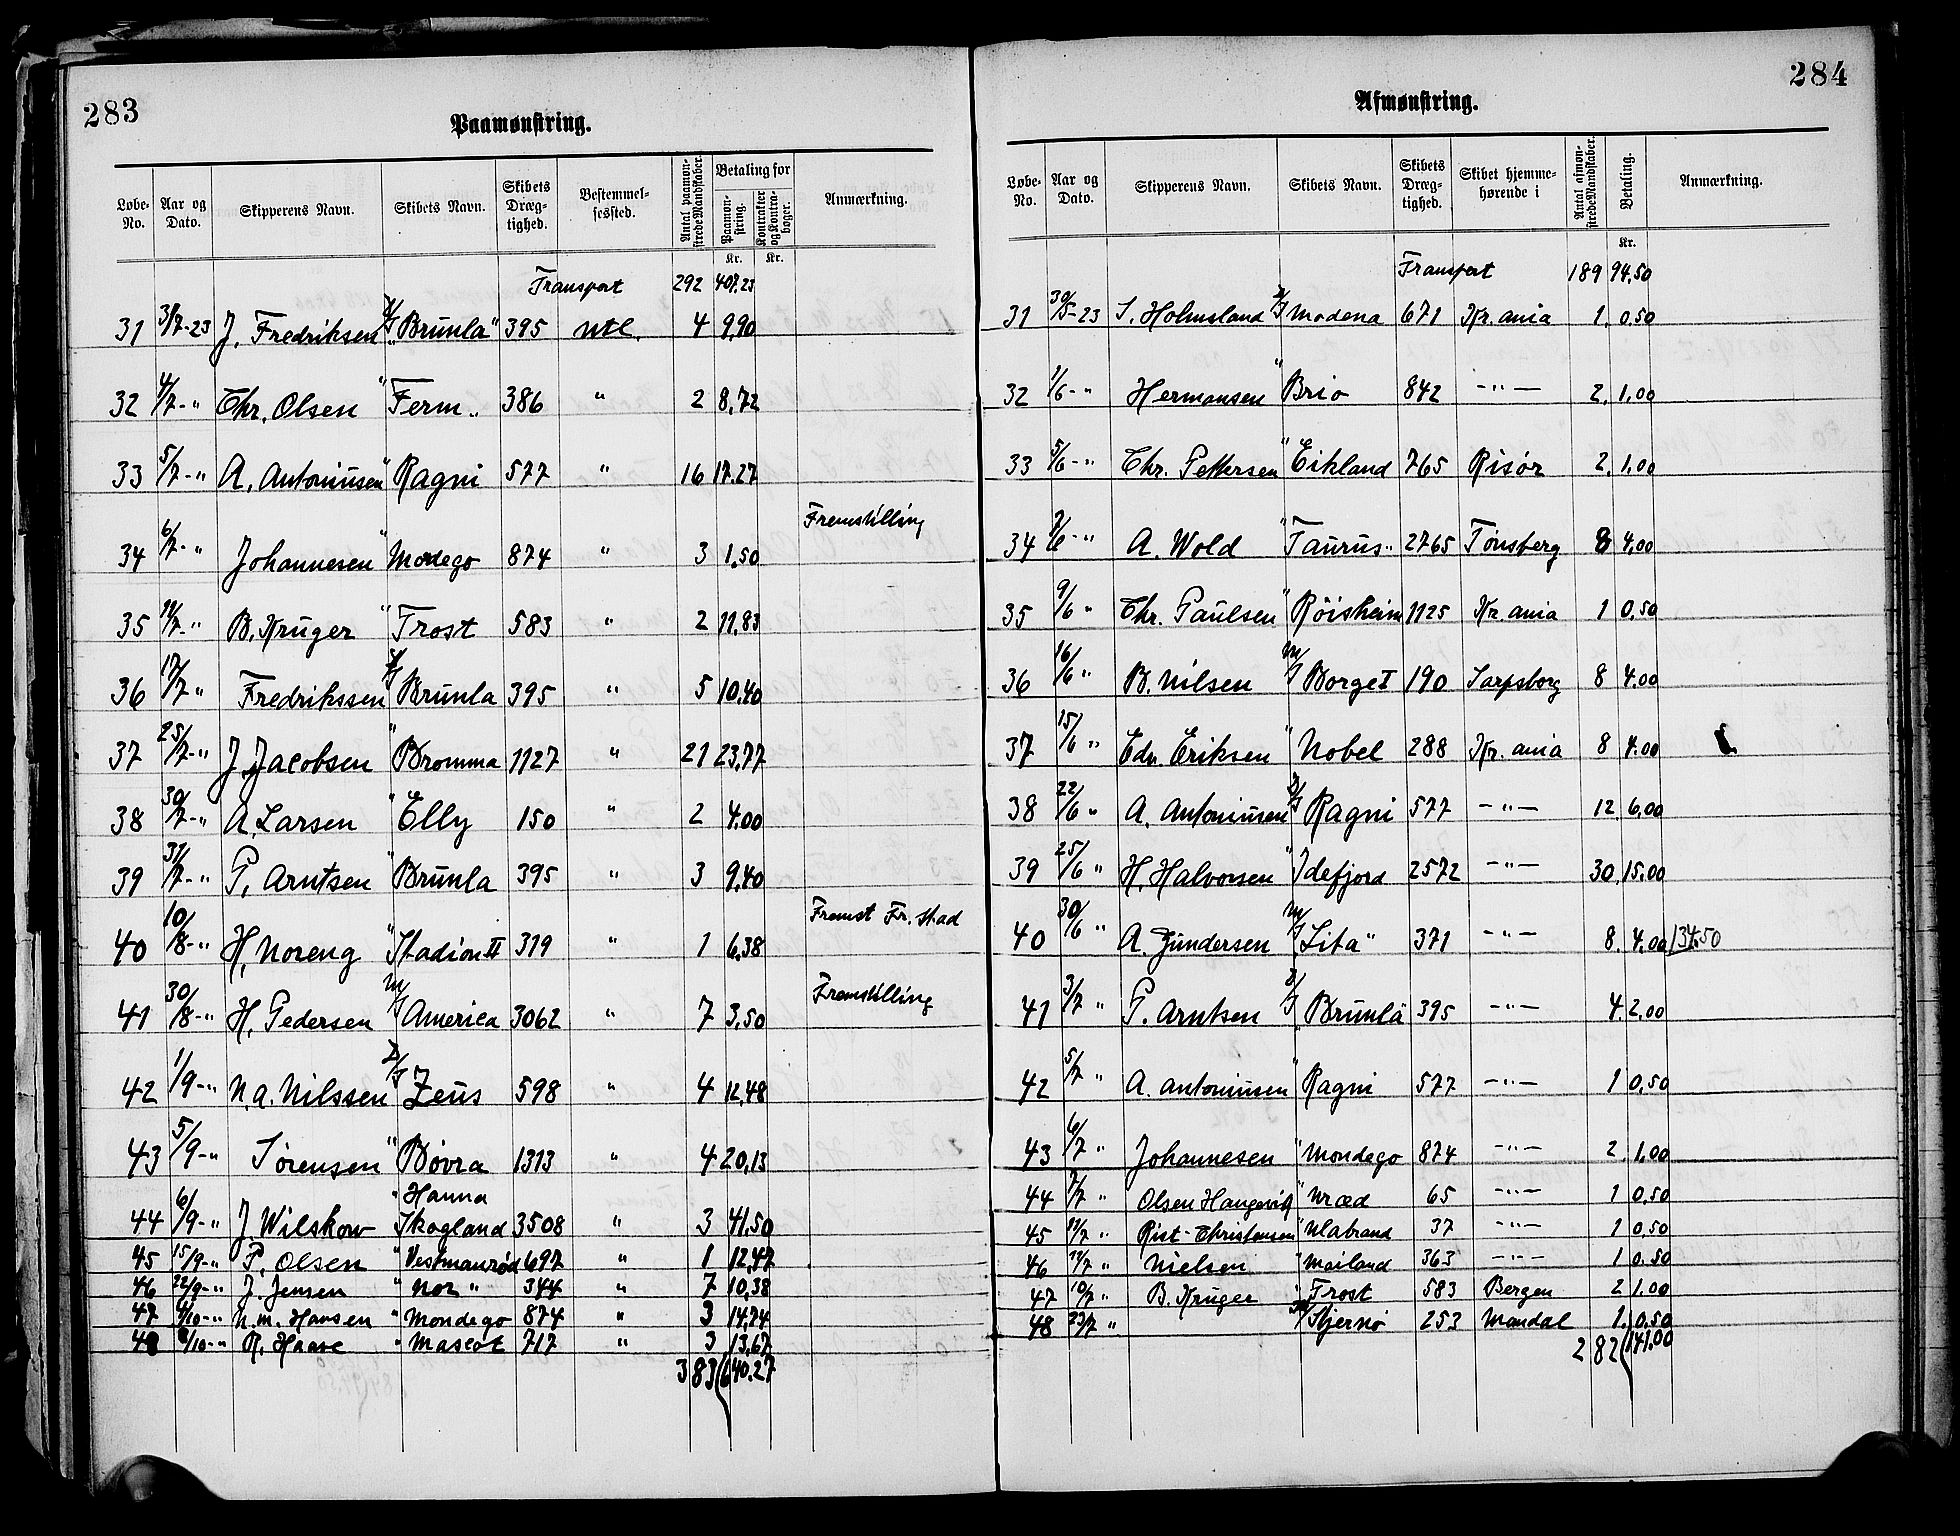 283
Paamønstring.
Løbe-No. Aar og Dato. Skipperens Navn. Skibets Navn. Skibets Dræg-tighed. Bestemmel-sessted. Antal paamøn-strede Mandskaber. Betaling for Paamøn-string. Kr. Kontrakter og Kontra-bøger. Kr. Anmærkning.
Transport 292 407.23
31 3/7-23 J. Fredriksen D/S "Brunla" 395 Utl. 4 9,90
32 4/7-" Chr. Olsen " Ferm " 386 " 2 8,72
33 5/7-" A. Antoniusen " Ragni 577 " 16 17.27
34 6/7-" Johannesen " Mondego 874 " 3 1,50 Fremstilling
35 11/7-" B. Kruger " Trost 583 " 2 11,83
36 17/7 " Fredrikssen D/S Brunla 395 " 5 10.40
37 25/7-" J. Jacobsen " Bromma 1127 " 21 23,77
38 30/7-" A. Larsen " Elly 150 " 2 4.00
39 31/7-" P. Arntsen " Brunla 395 " 3 9,40
40 10/8-" H. Noreng " Stadion II 319 " 1 6,38 Fremst Fr.stad
41 30/8-" H. Pedersen M/S America 3062 " 7 3,50 Fremstilling
42 1/9-" N.A. Nilssen D/S Zeus 598 " 4 12,48
43 5/9-" Sørensen " Bøvra 1313 " 4 20,13
44 6/9-" J Wilskow " Hanna Skogland 3508 " 3 41.50
45 15/9-" P. Olsen " Vestmanrød 697 " 1 12,47
46 22/9-" J. Jensen " Nor " 344 " 7 10,38
47 4/10-" N.M. Hansen " Mondego 874 " 3 14,74
48 8/10-" R. Haave " Mascot 717 " 3 13,67
383 640.27
284
Afmønstring.
Løbe-No. Aar og Dato. Skipperens Navn. Skibets Navn. Skibets Dræg-tighed. Skibet hjemme-hørende i Antal afmøn-strede Mandskaber. Betaling. Kr. Anmærkning.
Transport 189 94,50
31 30/5-23 S. Holmsland D/S Modena 671 Kr.ania 1. 0,50
32 1/6-" Hermansen " Brio 842 -"- 2. 1.00
33 5/6-" Chr. Pettersen " Eikland 765 Risør 2. 1,00
34 7/6-" A. Wold " Taurus " 2765 Tønsberg 8 4,00
35 9/6 " Chr. Paulsen " Röisheim 1125 Kr.ania 1 0,50
36 16/6 " B. Nilsen M/S Borge I 190 Sarpsborg 8 4.00
37 15/6 " Edv. Eriksen " Nobel 288 Kr.ania 8 4.00
38 22/6 " A. Antoniusen D/S Ragni 577 -"- 12 6,00
39 25/6 " H. Halvorsen " Idefjord 2572 -"- 30. 15.00
40 30/6 " A. Gundersen M/S "Lita" 371 -"- 8. 4.00 134.50
41 3/7 " P. Arntsen D/S Brunla 395 -"- 4. 2,00
42 5/7 " A. Antoniusen " Ragni 577 -"- 1 0,50
43 6/7 " Johannesen " Mondego 874 -"- 2. 1.00
44 7/7 " Olsen Haugevik " Uræd 65 -"- 1 0,50
45 11/7 " Rist-Christensen " Ulabrand 37 -"- 1 0,50
46 11/7 " Nielsen " Mailand 363 -"- 1 0.50
47 10/7 " B. Kruger " Trost 583 Bergen 2 1.00
48 23/7 " Stjernø 253 Mandal 1. 0,50
282 141.00